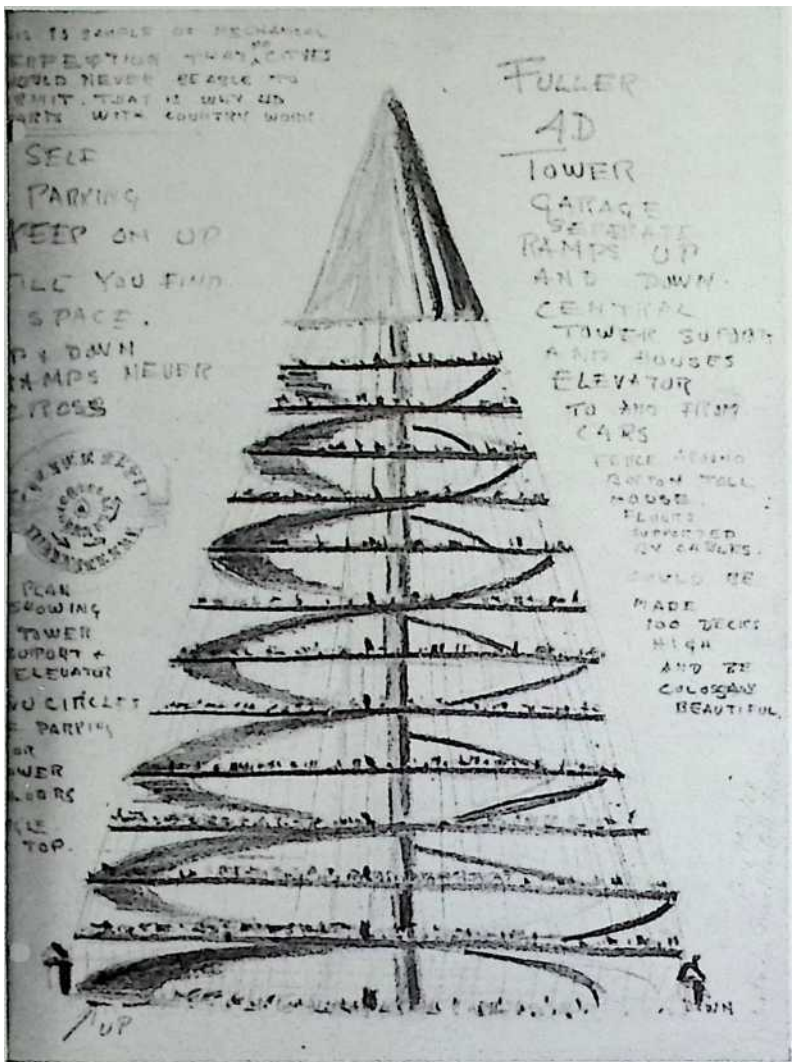 IS SAMPLE OF MECHANICAL
THAT NO CITIES
OULD NEVER BE ABLE TO
RMIT. THAT IS WHY 4D
WITH COUNTRY
SELF
PARKING
KEEP ON UP
TILL YOU FIND
SPACE.
P & DOWN
RAMPS NEVER
CROSS
PLAN
SHOWING
TOWER
SUPPORT +
ELEVATOR
CIRCLES
PARKING
OR
OWER
LOORS
TOP.
UP
FULLER
4D
TOWER
GARAGE
SEPERATE
RAMPS UP
AND DOWN.
CENTRAL
TOWER SUPORT
AND HOUSES
ELEVATOR
TO AND FROM
CARS
AROUND
BOTTOM TOLL
HOUSE.
FLOORS
SUPPORTED
BY CABLES.
COULD BE
MADE
100 DECKS
HIGH
AND BE
COLOSSALY
BEAUTIFUL.